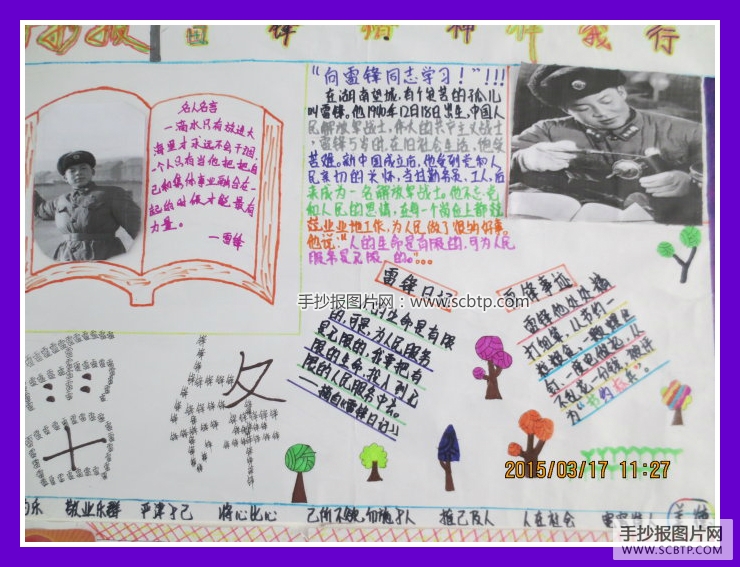 雷 锋 精 神 伴 我 行
名人名言
一滴水只有放进大
海里才永远不会干涸,
一个人只有当他把自
己和集体事业融合在一
起的时候才能最有
力量。
—雷锋
"向雷锋同志学习!"!!!
在湖南望城,有个贫苦的孤儿
叫雷锋。他1940年12月18日出生,中国人
民解放军战士,伟大的共产主义战士,
雷锋7岁时,在旧社会生活,他受
苦难。新中国成立后,他受到党和人
民亲切的关怀,当社勤务员、工人,后
来成为一名解放军战士。他不忘党
和人民的恩情,在每一个岗位上都兢
兢业业地工作,为人民做了很多好事。
他说:"人的生命是有限的,可为人民
服务是无限 的。"…
雷锋日记
生命是有限
的,可是,为人民服务
是无限的,我要把有
限的生命,投入到无
限的为人民服务中去。
——摘自《雷锋日记》
雷锋事迹
雷锋他处处精
打细算,从节约一
粒粮食、一颗螺丝
钉、一度电做起,从
不乱花一分钱,被评
为"节约标兵。
手抄报图片网:www.scbtp.com
2015/03/17 11:27
敬业乐群 严于律己 将心比心 己所不欲,勿施于人 推己及人 人在社会
手抄报图片网
WWW.SCBTP.COM